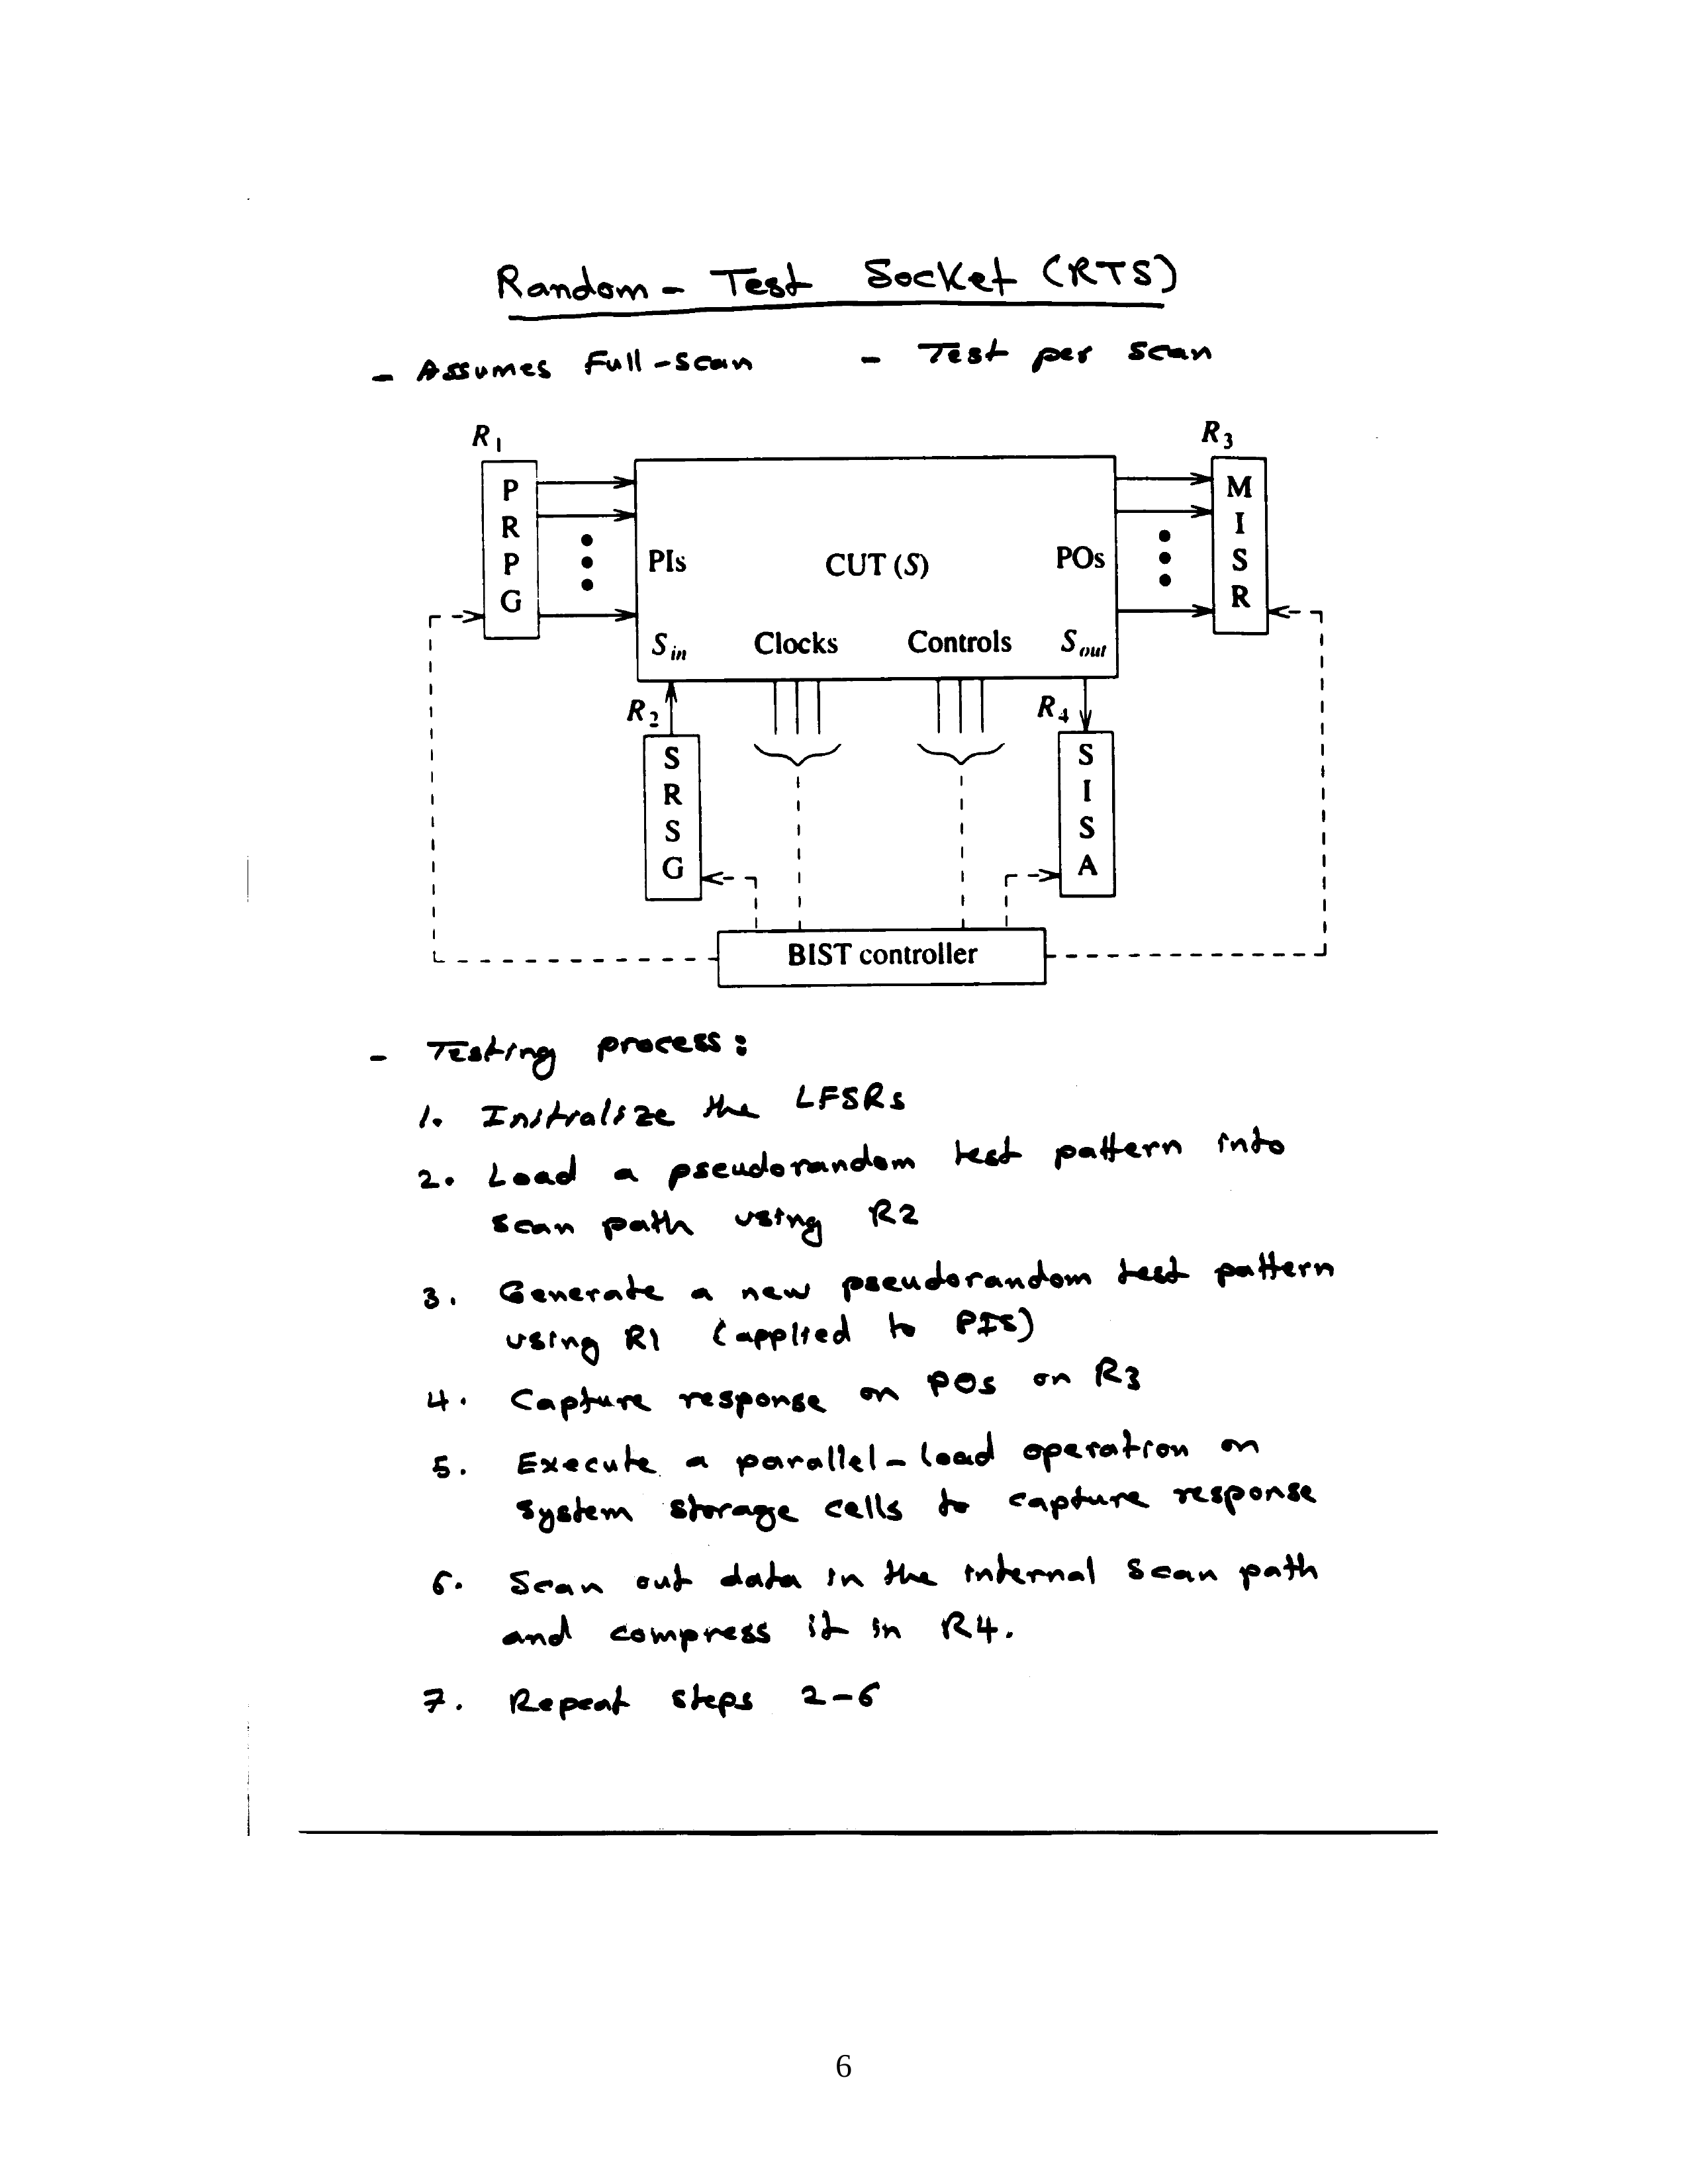 Random - Test Socket (RTS)
- Assumes Full-scan - Test per scan
R1 R3
P R P G
PIs CUT (S) POs
M I S R
Sin Clocks Controls Sout
R2 R4
S R S G
S I S A
BIST controller
- Testing process:
1. Initialize the LFSRs
2. Load a pseudorandom test pattern into
scan path using R2
3. Generate a new pseudorandom test pattern
using R1 (applied to PIs)
4. Capture response on POs on R3
5. Execute a parallel-load operation on
system storage cells to capture response
6. Scan out data in the internal scan path
and compress it in R4.
7. Repeat steps 2-6
6